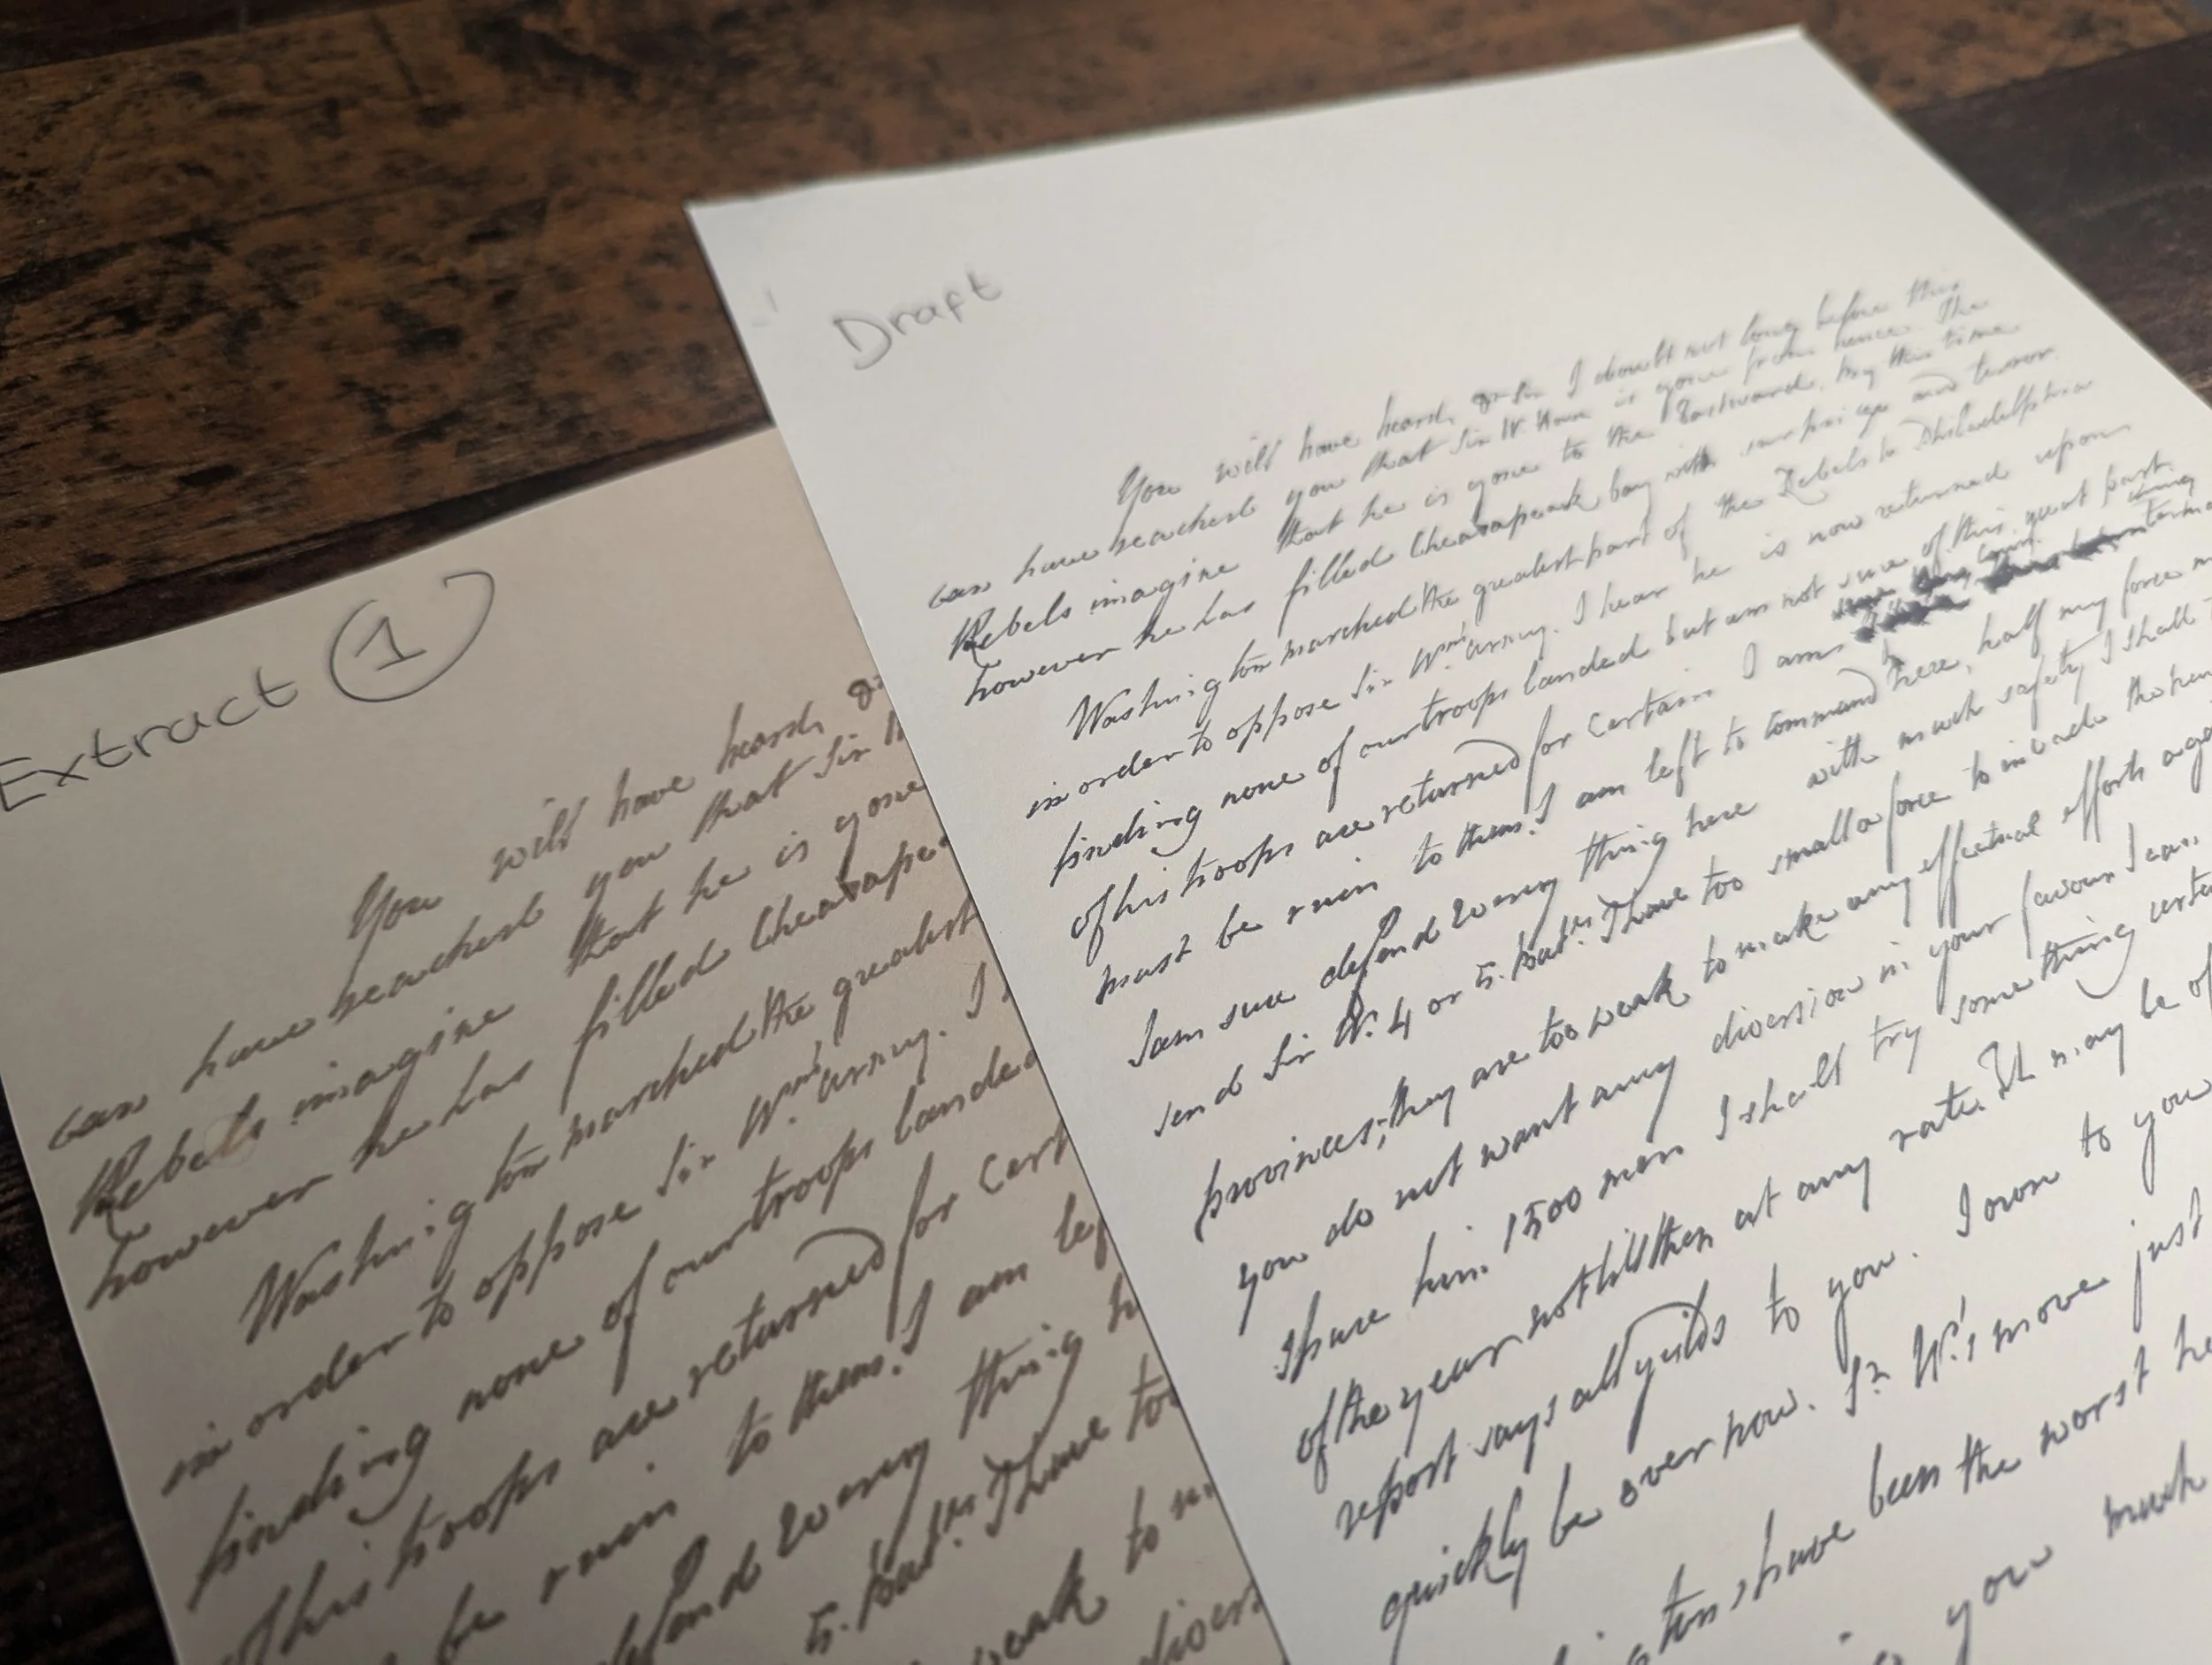 Extract 1
You will have heard, Dr
can have reached you that Sir W
Rebels imagine that he is gone
however he has filled Cheasapea
Washington marched the greatest
in order to oppose Sir Wm's army. I
finding none of our troops landed
of his troops are returned for Cert
be ruin to them. I am lef
defend Every thing he
5. Batns. I have too
weak to m
divers
Draft
You will have heard, Dr Sir I doubt not long before this
can have reached you that Sir W Howe is gone from hence. The
Rebels imagine that he is gone to the Eastward. by this time
however he has filled Cheasapeak bay with surprize and terror.
Washington marched the greatest part of the Rebels to Philadelphia
in order to oppose Sir Wm's army. I hear he is now returned upon
finding none of our troops landed but am not sure of this. great part
of his troops are returned for Certain I am
must be ruin to them. I am left to command here, half my force
I am sure defend Every thing here with much safety I shall
send Sir W. 4 or 5. Batns. I have too small a force to invade the
provinces; they are too weak to make any effectual efforts
you do not want any diversion in your favour I can
spare him 1500 men I shall try some thing
of the year not till then at any rate. It may be of
report says all yeilds to you. I own to you
quickly be over now. Sr W's move just
have been the worst he
you much